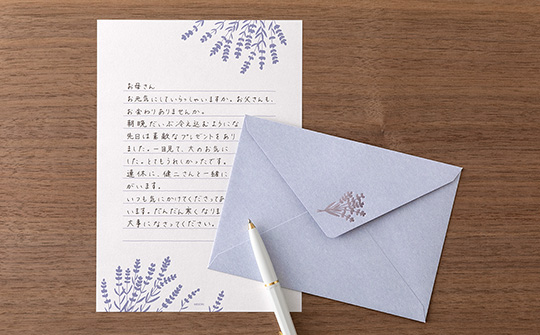 お母さん
お元気にしていらっしゃいますか。お父さんも、
お変わりありませんか。
朝晩だいぶ冷え込むようにな
先日は素敵なプレゼントをあり
ました。一目見て、大のお気に
した。とてもうれしかったです。
連休に、健二さんと一緒に
がいます。
いつも気にかけてくださってあ
います。だんだん寒くなりま
大事になさってください。